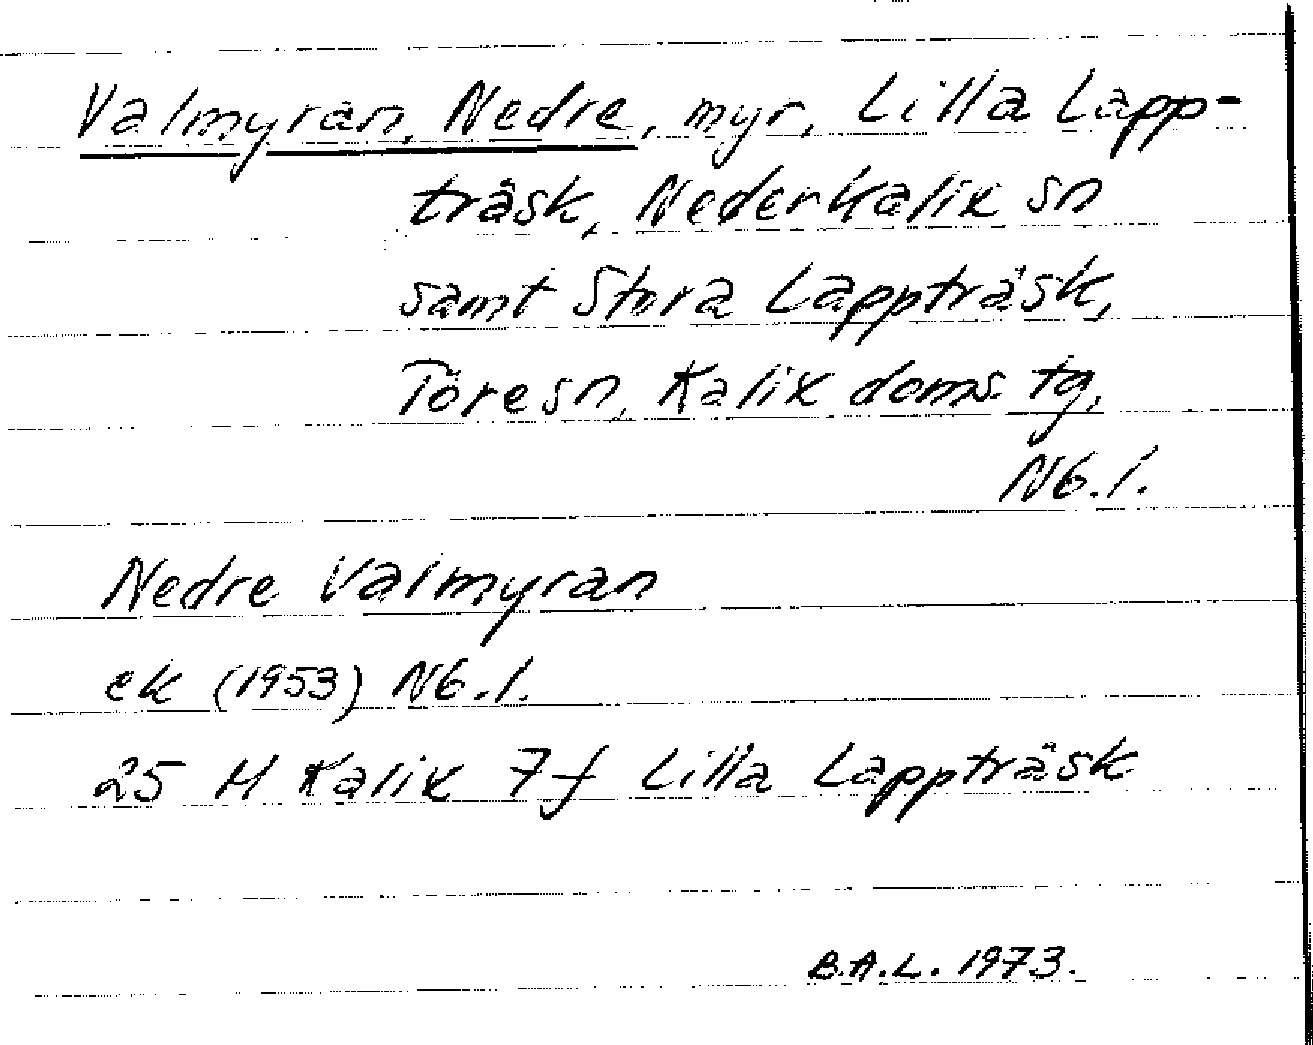 Valmyran, Nedre, myr, Lilla Lapp-
träsk, Nederkalix sn
samt Stora Lappträsk,
Töre sn, Kalix doms. tg,
Nb. l.
Nedre Valmyran
ek (1953) Nb. l.
25 M Kalix 7f Lilla Lappträsk
B.A.L. 1973.